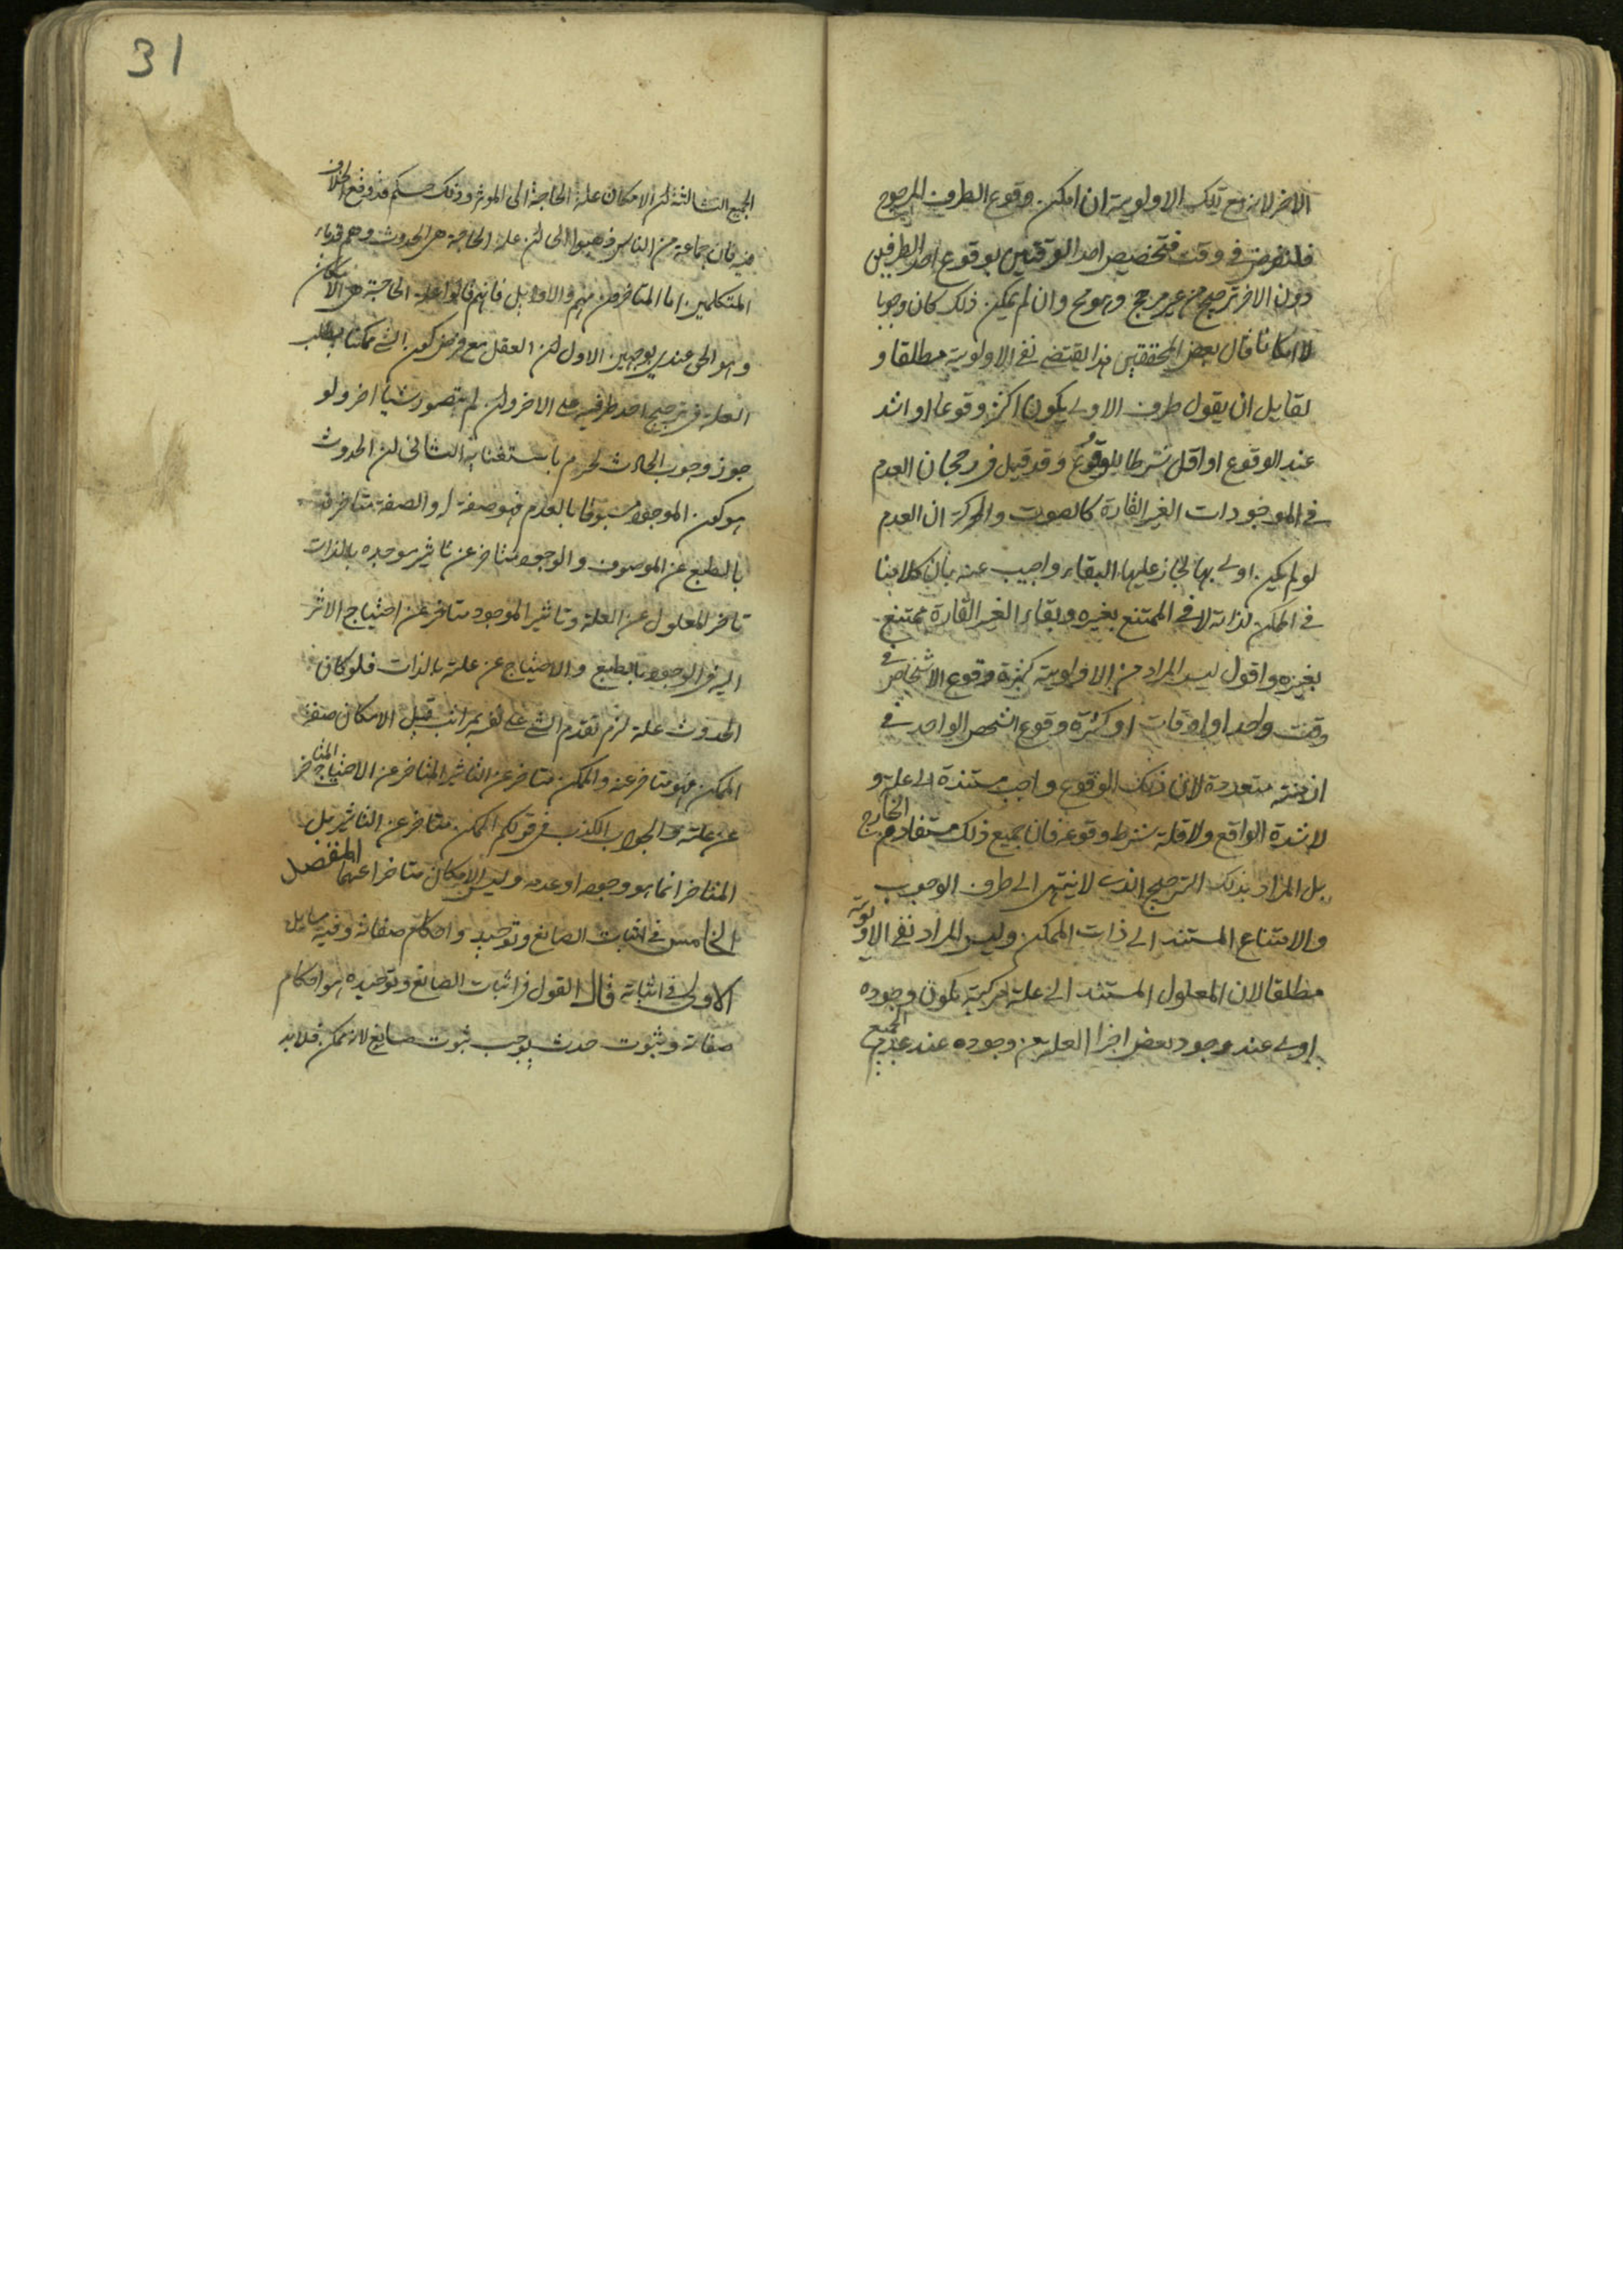 الاخر لانه مع تلك الاولوية ان امكن وقوع الطرف المرجوح
فلنفرض في وقت فتخصيص احد الوقتين بوقوع احد الطرفين
دون الاخر ترجيح من غير مرجح وهو مح وان لم يمكن ذلك كان وجوبا
لا امكانا قال بعض المحققين هذا يقتضي نفي الاولوية مطلقا و
لقايل ان يقول طرف الاولى يكون اكثر وقوعا او اشد
عند الوقوع او اقل شرطا للوقوع وقد قيل في رجحان العدم
في الموجودات الغير القارة كالصوت والحركة ان العدم
لو لم يكن اولى بها لجاز عليها البقاء واجيب عنه بان كلامنا
في الممكن لذاته لا في الممتنع بغيره وبقاء الغير القارة ممتنع
بغيره واقول ليس المراد من الاولوية كثرة وقوع الاشخاص في
وقت واحد او اوقات او كثرة وقوع الشخص الواحد في
ازمنة متعددة لان ذلك الوقوع واجب مستندة الى علة و
لا شدة الواقع ولا قلة شرط وقوعه فان جميع ذلك مستفاد من الخارج
بل المراد بذلك الترجيح الذي لا ينتهي الى طرف الوجوب
والامتناع المستند الى ذات الممكن وليس المراد نفي الاولوية
مطلقا لان المعلول المستند الى علة مركبة يكون وجوده
اولى عند وجود بعض اجزا العلة من وجوده عند عدم الجميع
31
الجميع الثالثة ان الامكان علة الحاجة الى الموثر وذلك حكم قد وقع الخلاف
فيه فان جماعة من الناس ذهبوا الى ان علة الحاجة هي الحدوث وهم قدماء
المتكلمين اما المتاخرون منهم والاوايل فانهم قالوا علة الحاجة هي الامكان
وهو الحق عندي لوجهين الاول ان العقل مع فرض كون الشي ممكنا يطلب
العلة في ترجيح احد طرفيه على الاخر وان لم يتصور شيئا اخر ولو
جوز وجوب الحادث لجزم باستغنائه الثاني ان الحدوث
هو كون الموجود مسبوقا بالعدم فهو صفة له والصفة متاخرة
بالطبع عن الموصوف والوجود متاخر عن تاثير موجده بالذات
تاخر المعلول عن العلة وتاثير الموجد متاخر عن احتياج الاثر
اليه في الوجود بالطبع والاحتياج عن علته بالذات فلو كان
الحدوث علة لزم تقدم الشي على نفسه بمراتب قيل الامكان صفة
الممكن فهو متاخر عنه والممكن متاخر عن التاثير المتاخر عن الاحتياج المتاخر
عن علته والجواب الكذب في قولكم الممكن متاخر عن التاثير بل
المتاخر انما هو وجوده او عدمه وليس الامكان متاخرا عنهما الفصل
الخامس في اثبات الصانع وتوحيده واحكام صفاته وفيه مسايل
الاولى في اثباته قال القول في اثبات الصانع وتوحيده واحكام
صفاته وثبوت حدث يوجب ثبوت صانع لانه ممكن فلا بد